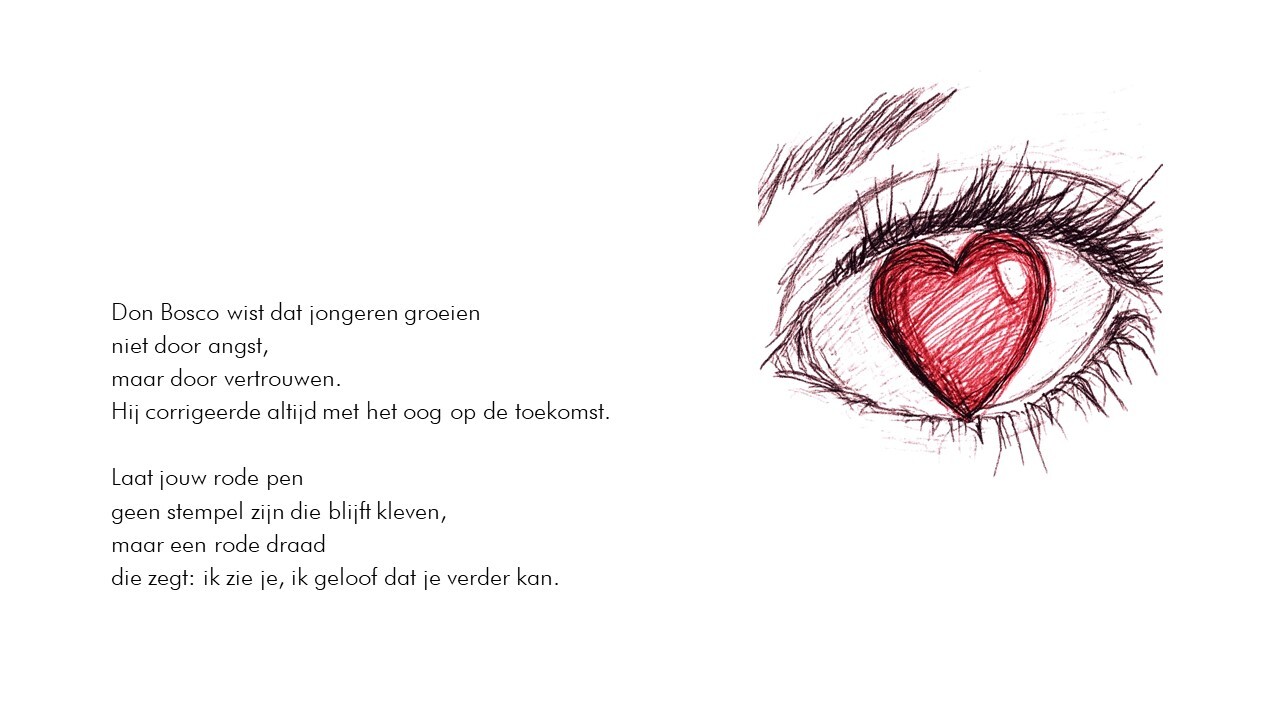 Don Bosco wist dat jongeren groeien
niet door angst,
maar door vertrouwen.
Hij corrigeerde altijd met het oog op de toekomst.
Laat jouw rode pen
geen stempel zijn die blijft kleven,
maar een rode draad
die zegt: ik zie je, ik geloof dat je verder kan.